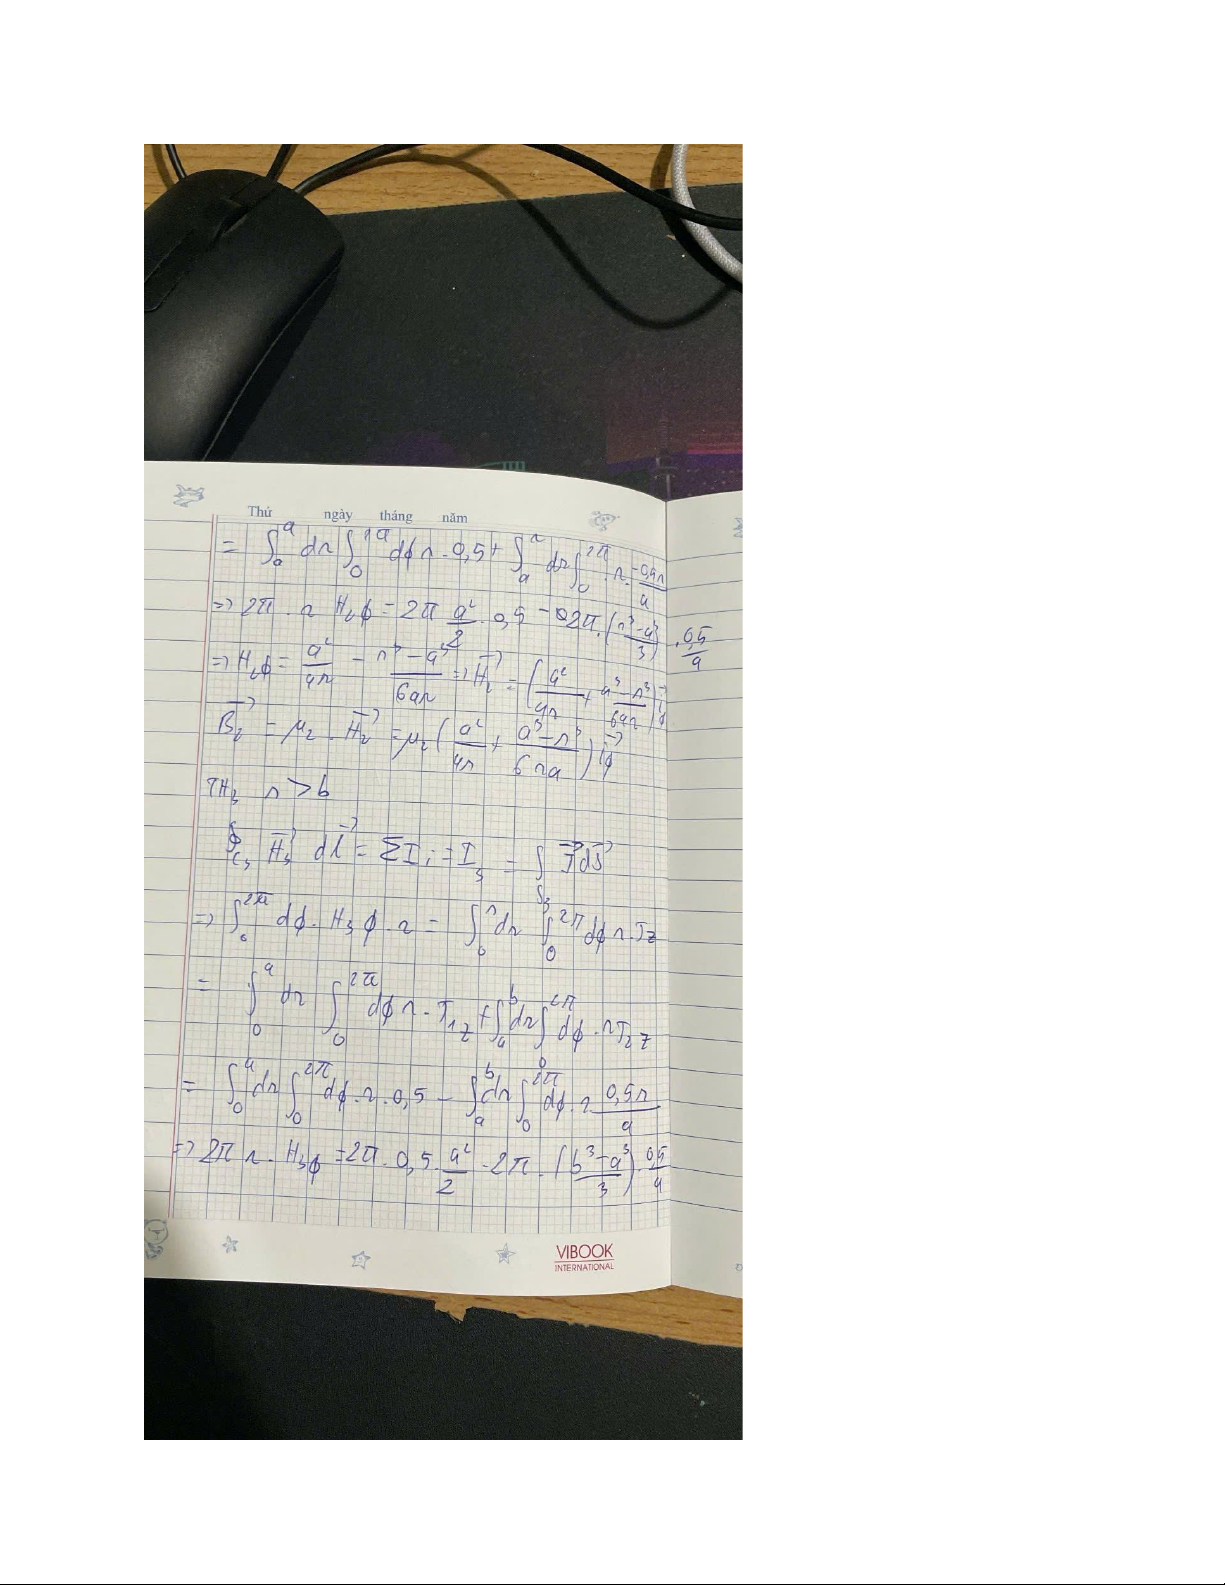 Thứ ngày tháng năm
= ∫ₐᵃ dr ∫₀ dϕ r . 0,5 + ∫ₐʳ dr ∫₀^2π . r . -0,5r/a
=> 2π . r H₂ϕ = 2π a²/2 . 0,5 - 2π . (r³-a³/3) . 0,5/a
=> H₂ϕ = a²/4r - r³-a³/6ar => H₂→ = (a²/4r + a³-r³/6ar) i→ϕ
B₂→ = μ₂ . H₂→ = μ₂ (a²/4r + a³-r³/6ra) i→ϕ
TH₃ r > b
∮_C₃ H₃→ dl→ = ΣIᵢ = I₃ = ∫_S₃ J→ dS→
=> ∫₀^2π dϕ . H₃ϕ . r = ∫₀ʳ dr ∫₀^2π dϕ r . Jz
= ∫₀ᵃ dr ∫₀^2π dϕ r . J₁z + ∫ₐᵇ dr ∫₀^2π dϕ . r J₂z
= ∫₀ᵃ dr ∫₀^2π dϕ . r . 0,5 - ∫ₐᵇ dr ∫₀^2π dϕ . r 0,5r/a
=> 2π r . H₃ϕ = 2π . 0,5 . a²/2 - 2π . (b³-a³/3) . 0,5/a
VIBOOK
INTERNATIONAL